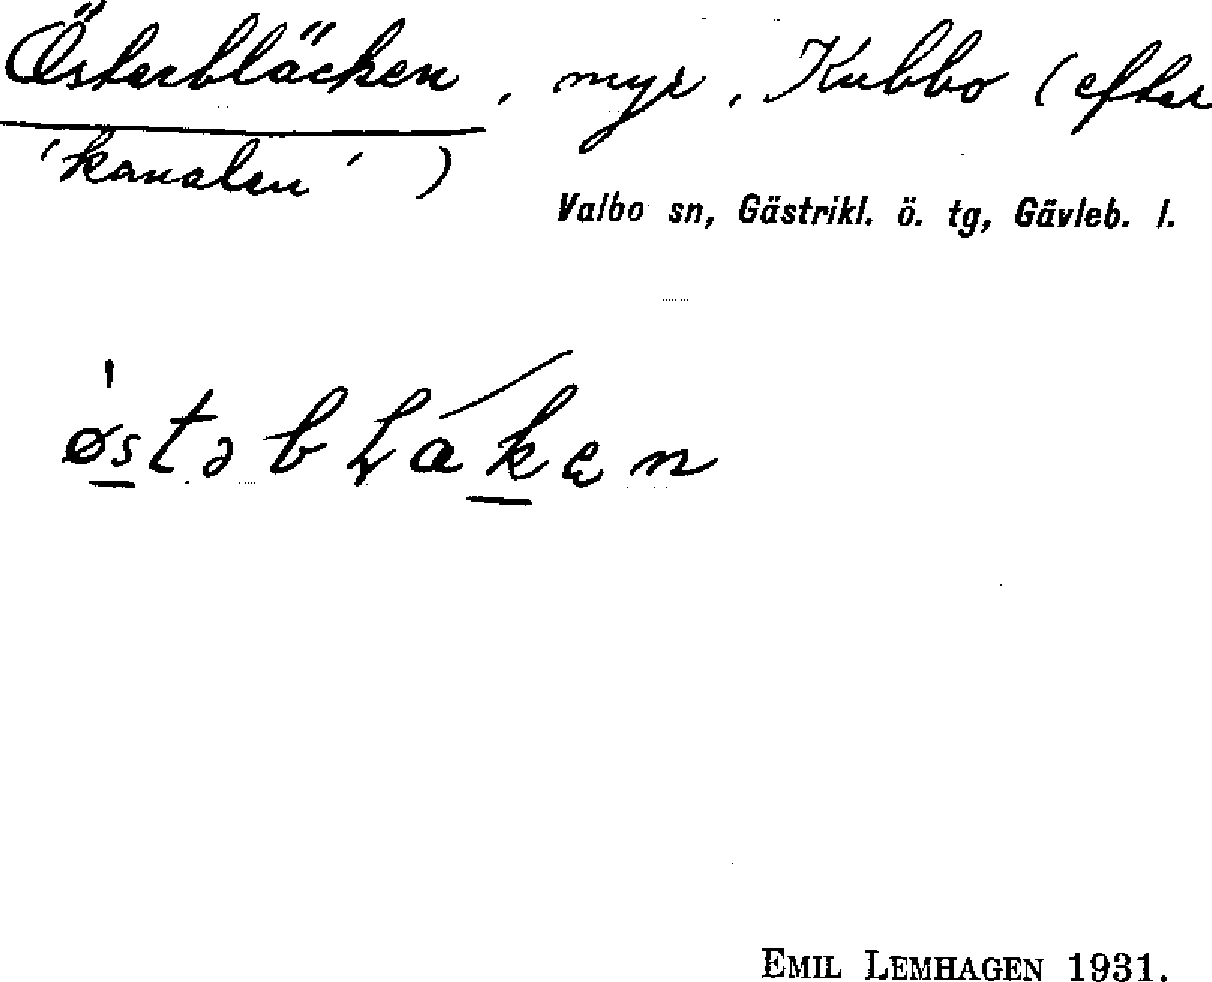 Österbläcken, myr, Kubbo (efter
'kanalen')
Valbo sn, Gästrikl. ö. tg, Gävleb. l.
EMIL LEMHAGEN 1931.